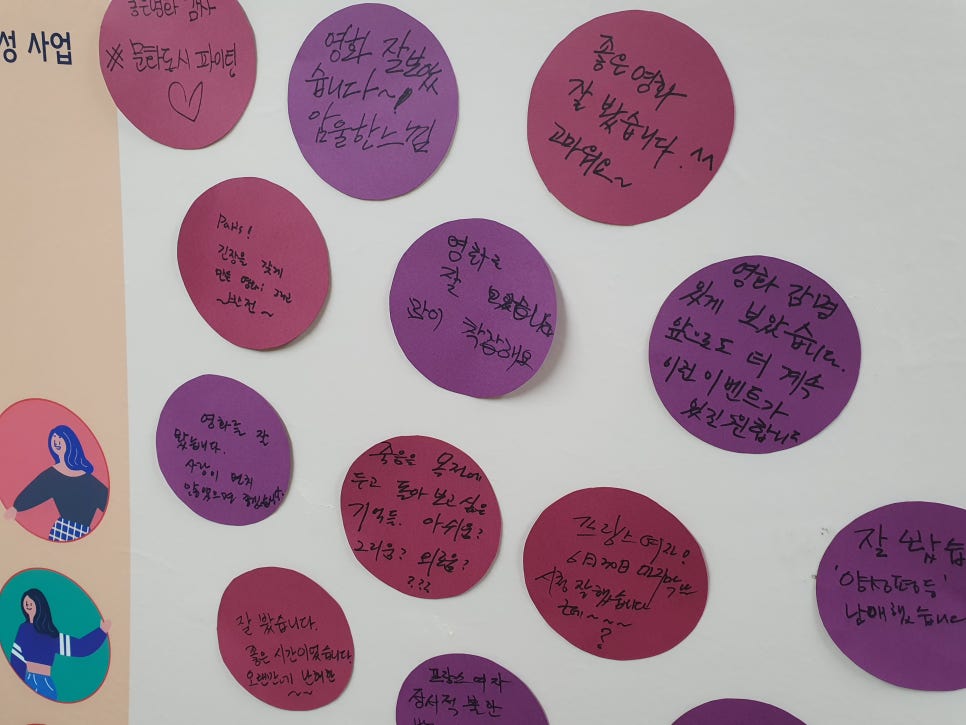 성 사업
좋은영화 감사
※ 문화도시 파이팅
영화 잘 보았
습니다~
암울한 느낌
좋은 영화
잘 봤습니다. ^^
고마워요~
긴장을 갖게
만든 영화!
~반전~
영화를
잘 보았습니다
맘이 착잡해요
영화 감명
있게 보았습니다.
앞으로도 더 계속
이런 이벤트가
있길 원합니다
영화를 잘
봤습니다.
죽음을 목전에
두고 돌아 보고 싶은
기억들. 아쉬움?
그리움? 외로움?
???
프랑스 여자!
6月30日 마지막 날
시청 잘 했습니다
근데~~~
?
잘 봤습
'양성평등'
잘 봤습니다.
좋은 시간이었습니다.
오랜만에
~~
프랑스 여자
정서적 불안